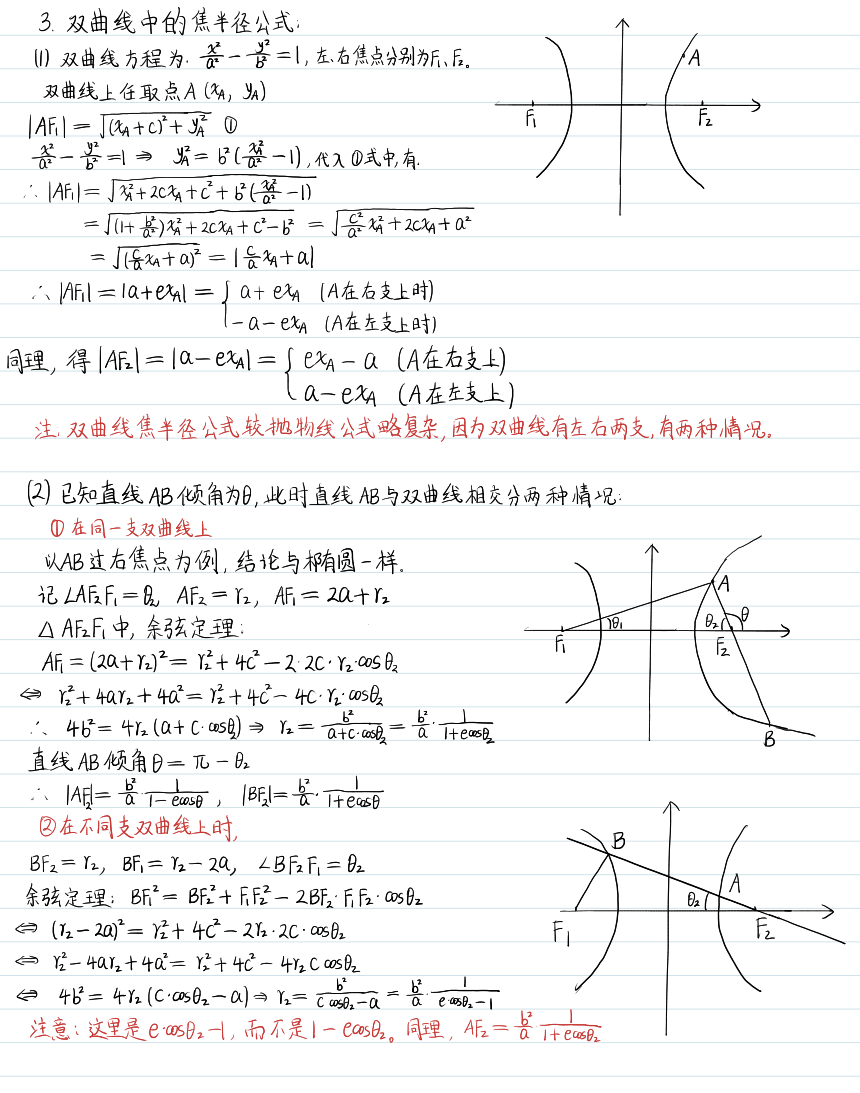 3. 双曲线中的焦半径公式:
(1) 双曲线方程为: x²/a² - y²/b² = 1, 左、右焦点分别为F₁、F₂。
双曲线上任取点A (x_A, y_A)
|AF₁| = √((x_A+c)² + y_A²) ①
x²/a² - y²/b² = 1 ⇒ y_A² = b²(x_A²/a² - 1), 代入①式中, 有.
∴ |AF₁| = √(x_A² + 2cx_A + c² + b²(x_A²/a² - 1))
= √((1 + b²/a²)x_A² + 2cx_A + c² - b²) = √(c²/a² x_A² + 2cx_A + a²)
= √((c/a x_A + a)²) = |c/a x_A + a|
∴ |AF₁| = |a + ex_A| = { a + ex_A (A在右支上时)
-a - ex_A (A在左支上时)
同理, 得 |AF₂| = |a - ex_A| = { ex_A - a (A在右支上)
a - ex_A (A在左支上)
注: 双曲线焦半径公式较抛物线公式略复杂, 因为双曲线有左右两支, 有两种情况。
A
F₁
F₂
(2) 已知直线AB倾角为θ, 此时直线AB与双曲线相交分两种情况:
① 在同一支双曲线上
以AB过右焦点为例, 结论与椭圆一样。
记∠AF₂F₁ = θ₂, AF₂ = r₂, AF₁ = 2a + r₂
△AF₂F₁中, 余弦定理:
AF₁ = (2a + r₂)² = r₂² + 4c² - 2·2c·r₂·cosθ₂
⇔ r₂² + 4ar₂ + 4a² = r₂² + 4c² - 4c·r₂·cosθ₂
∴ 4b² = 4r₂(a + c·cosθ₂) ⇒ r₂ = b²/(a + c·cosθ₂) = b²/a · 1/(1 + ecosθ₂)
直线AB倾角θ = π - θ₂
∴ |AF₂| = b²/a · 1/(1 - ecosθ), |BF₂| = b²/a · 1/(1 + ecosθ)
A
θ₁
θ₂
θ
F₁
F₂
B
② 在不同支双曲线上时,
BF₂ = r₂, BF₁ = r₂ - 2a, ∠BF₂F₁ = θ₂
余弦定理: BF₁² = BF₂² + F₁F₂² - 2BF₂·F₁F₂·cosθ₂
⇔ (r₂ - 2a)² = r₂² + 4c² - 2r₂·2c·cosθ₂
⇔ r₂² - 4ar₂ + 4a² = r₂² + 4c² - 4r₂ccosθ₂
⇔ 4b² = 4r₂(c·cosθ₂ - a) ⇒ r₂ = b²/(c cosθ₂ - a) = b²/a · 1/(e·cosθ₂ - 1)
注意: 这里是e·cosθ₂ - 1, 而不是1 - ecosθ₂。同理, AF₂ = b²/a · 1/(1 + ecosθ₂)
B
A
θ₂
F₁
F₂